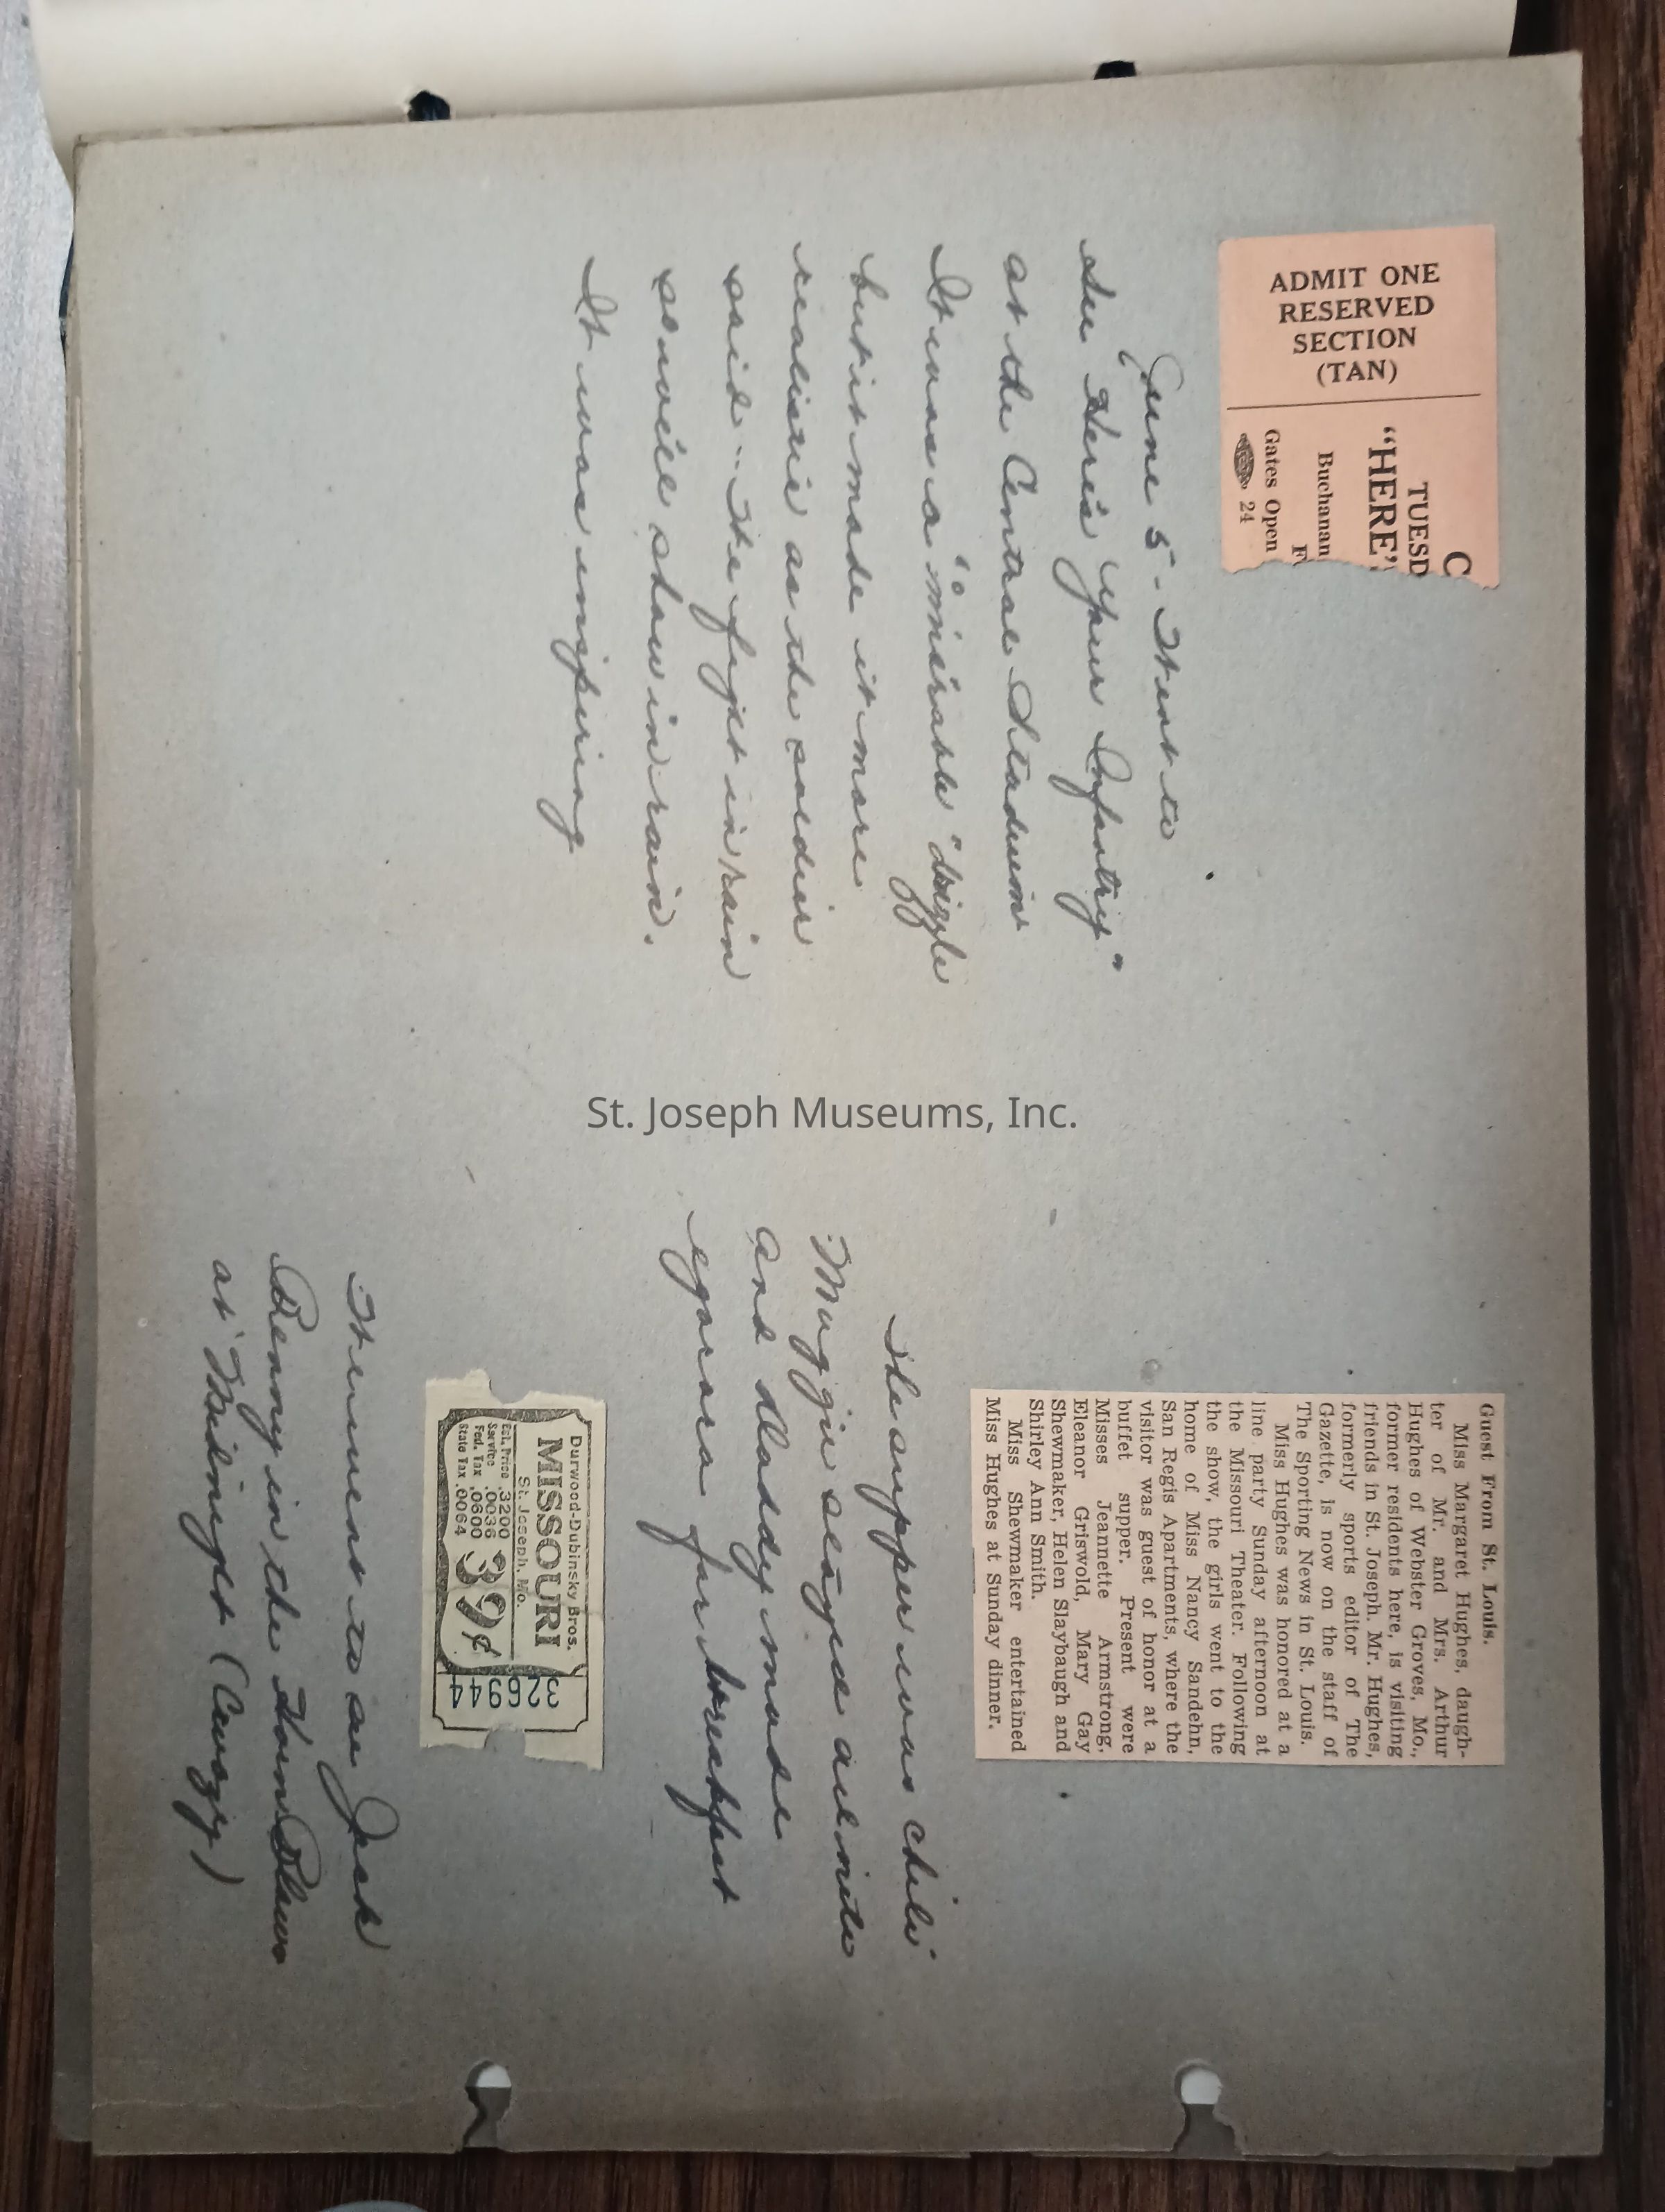 ADMIT ONE
RESERVED
SECTION
(TAN)
C
TUESD
"HERE'
Buchanan
F
Gates Open
24
June 5 - Went to
see "Here's Your Infantry"
at the Central Stadium
It was a mirable "drizzle
but it made it more
realistic as the soldier
said -- We fight in rain
so we'll show in rain.
It was inspiring
Guest From St. Louis.
Miss Margaret Hughes, daugh-
ter of Mr. and Mrs. Arthur
Hughes of Webster Groves, Mo.,
former residents here, is visiting
friends in St. Joseph. Mr. Hughes,
formerly sports editor of The
Gazette, is now on the staff of
The Sporting News in St. Louis.
Miss Hughes was honored at a
line party Sunday afternoon at
the Missouri Theater. Following
the show, the girls went to the
home of Miss Nancy Sandehn,
San Regis Apartments, where the
visitor was guest of honor at a
buffet supper. Present were
Misses Jeannette Armstrong,
Eleanor Griswold, Mary Gay
Shewmaker, Helen Slaybaugh and
Shirley Ann Smith.
Miss Shewmaker entertained
Miss Hughes at Sunday dinner.
The supper was chili
Maggie stayed all nite
and Daddy made
for breakfast
Durwood-Dubinsky Bros.
MISSOURI
St. Joseph, Mo.
Est. Price .3200
Service .0036
Fed. Tax .0600
State Tax .0064
39¢
326944
It went to see Jack
Benny in the Horn Blows
at Midnight (Crazy)
St. Joseph Museums, Inc.